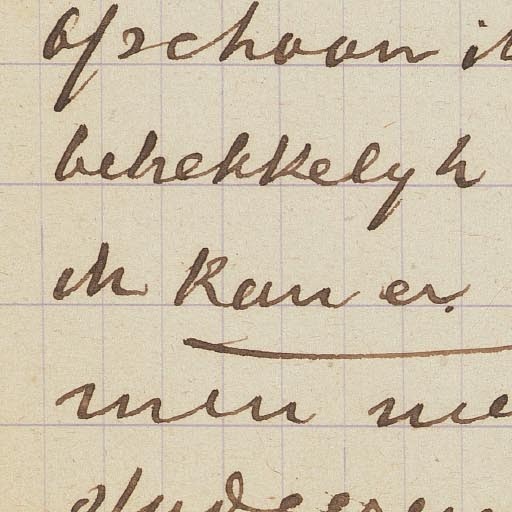 ofschoon ik
betrekkelyk
ik kan er
men me